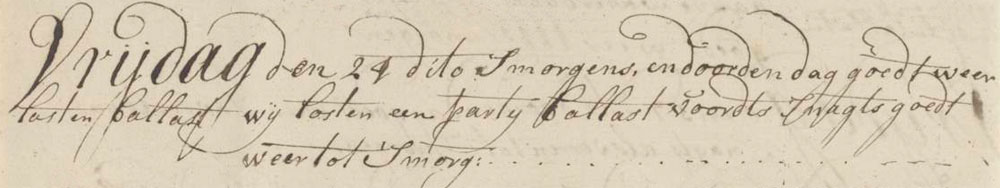 Vrijdag den 24 dito Smorgens, en door den dag goedt weer
lasten ballast wij losten een party ballast voordts Snagts goedt
weer tot Smorg: